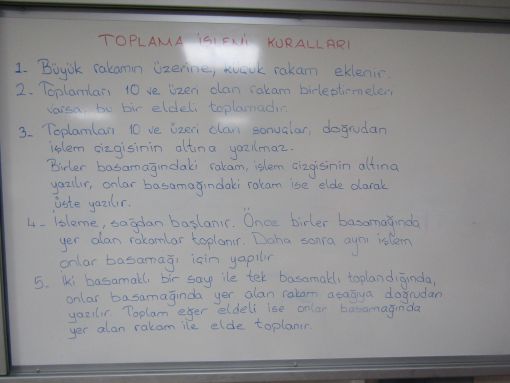 TOPLAMA İŞLEMİ KURALLARI
1- Büyük rakamın üzerine, küçük rakam eklenir.
2- Toplamları 10 ve üzeri olan rakam birleştirmeleri
varsa, bu bir eldeli toplamadır.
3- Toplamları 10 ve üzeri olan sonuçlar, doğrudan
işlem çizgisinin altına yazılmaz.
Birler basamağındaki rakam, işlem çizgisinin altına
yazılır, onlar basamağındaki rakam ise elde olarak
üste yazılır.
4- İşleme, sağdan başlanır. Önce birler basamağında
yer alan rakamlar toplanır. Daha sonra aynı işlem
onlar basamağı için yapılır
5- İki basamaklı bir sayı ile tek basamaklı toplandığında,
onlar basamağında yer alan rakam aşağıya doğrudan
yazılır. Toplam eğer eldeli ise onlar basamağında
yer alan rakam ile elde toplanır.